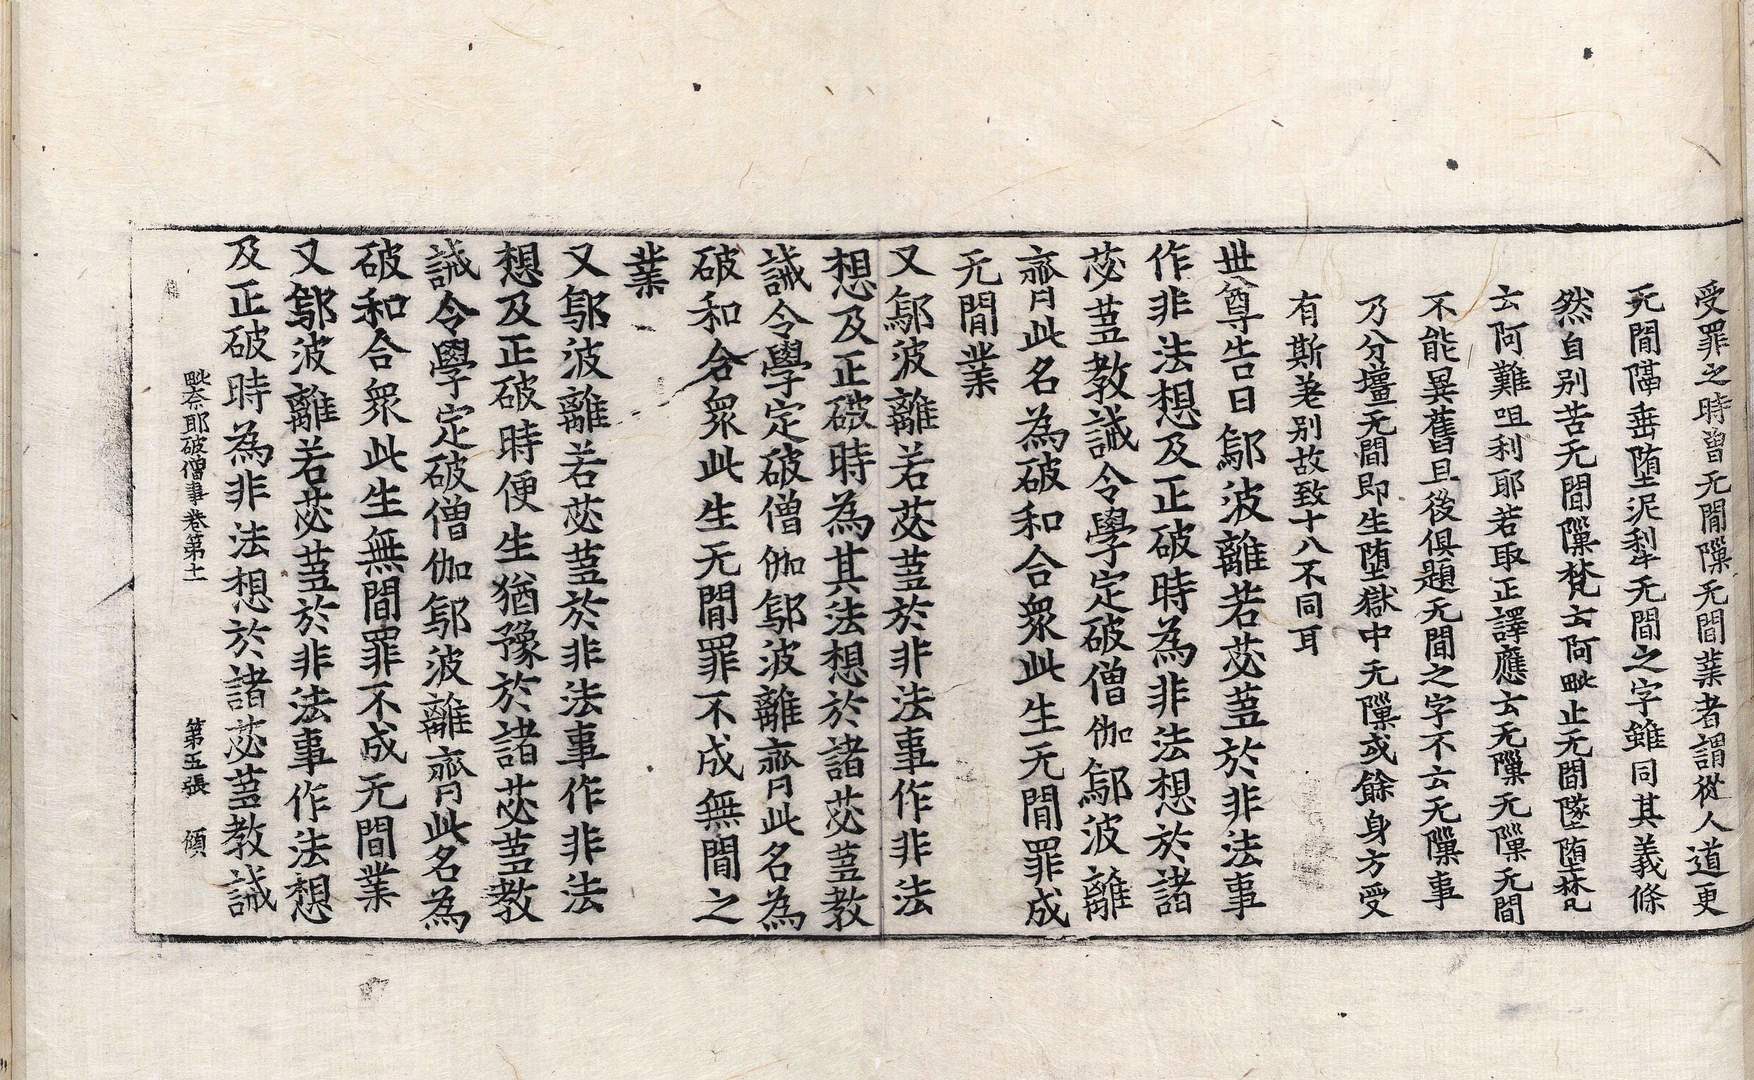 受罪之時曾无間𨻶无間業者謂從人道更
无間隔垂墮泥利本无間之字雖同其義條
然自別苦无間𨻶梵云阿毗止无間墜墮梵
云阿難呾利耶若取正譯應云无𨻶无𨻶无間
不能異舊且後俱題无間之字不云无𨻶事
乃分壇无間即生墮獄中无𨻶或餘身方受
有斯差別故致十八不同耳
世尊告曰鄔波離若苾蒭於非法事
作非法想及正破時為非法想於諸
苾蒭教誡令學定破僧伽鄔波離
齊此名為破和合衆此生无間罪成
无間業
又鄔波離若苾蒭於非法事作非法
想及正破時為其法想於諸苾蒭教
誡令學定破僧伽鄔波離齊此名為
破和合衆此生无間罪不成無間之
業
又鄔波離若苾蒭於非法事作非法
想及正破時便生猶豫於諸苾蒭教
誡令學定破僧伽鄔波離齊此名為
破和合衆此生無間罪不成无間業
又鄔波離若苾蒭於非法事作法想
及正破時為非法想於諸苾蒭教誡
毗奈耶破僧事卷第十一 第五張